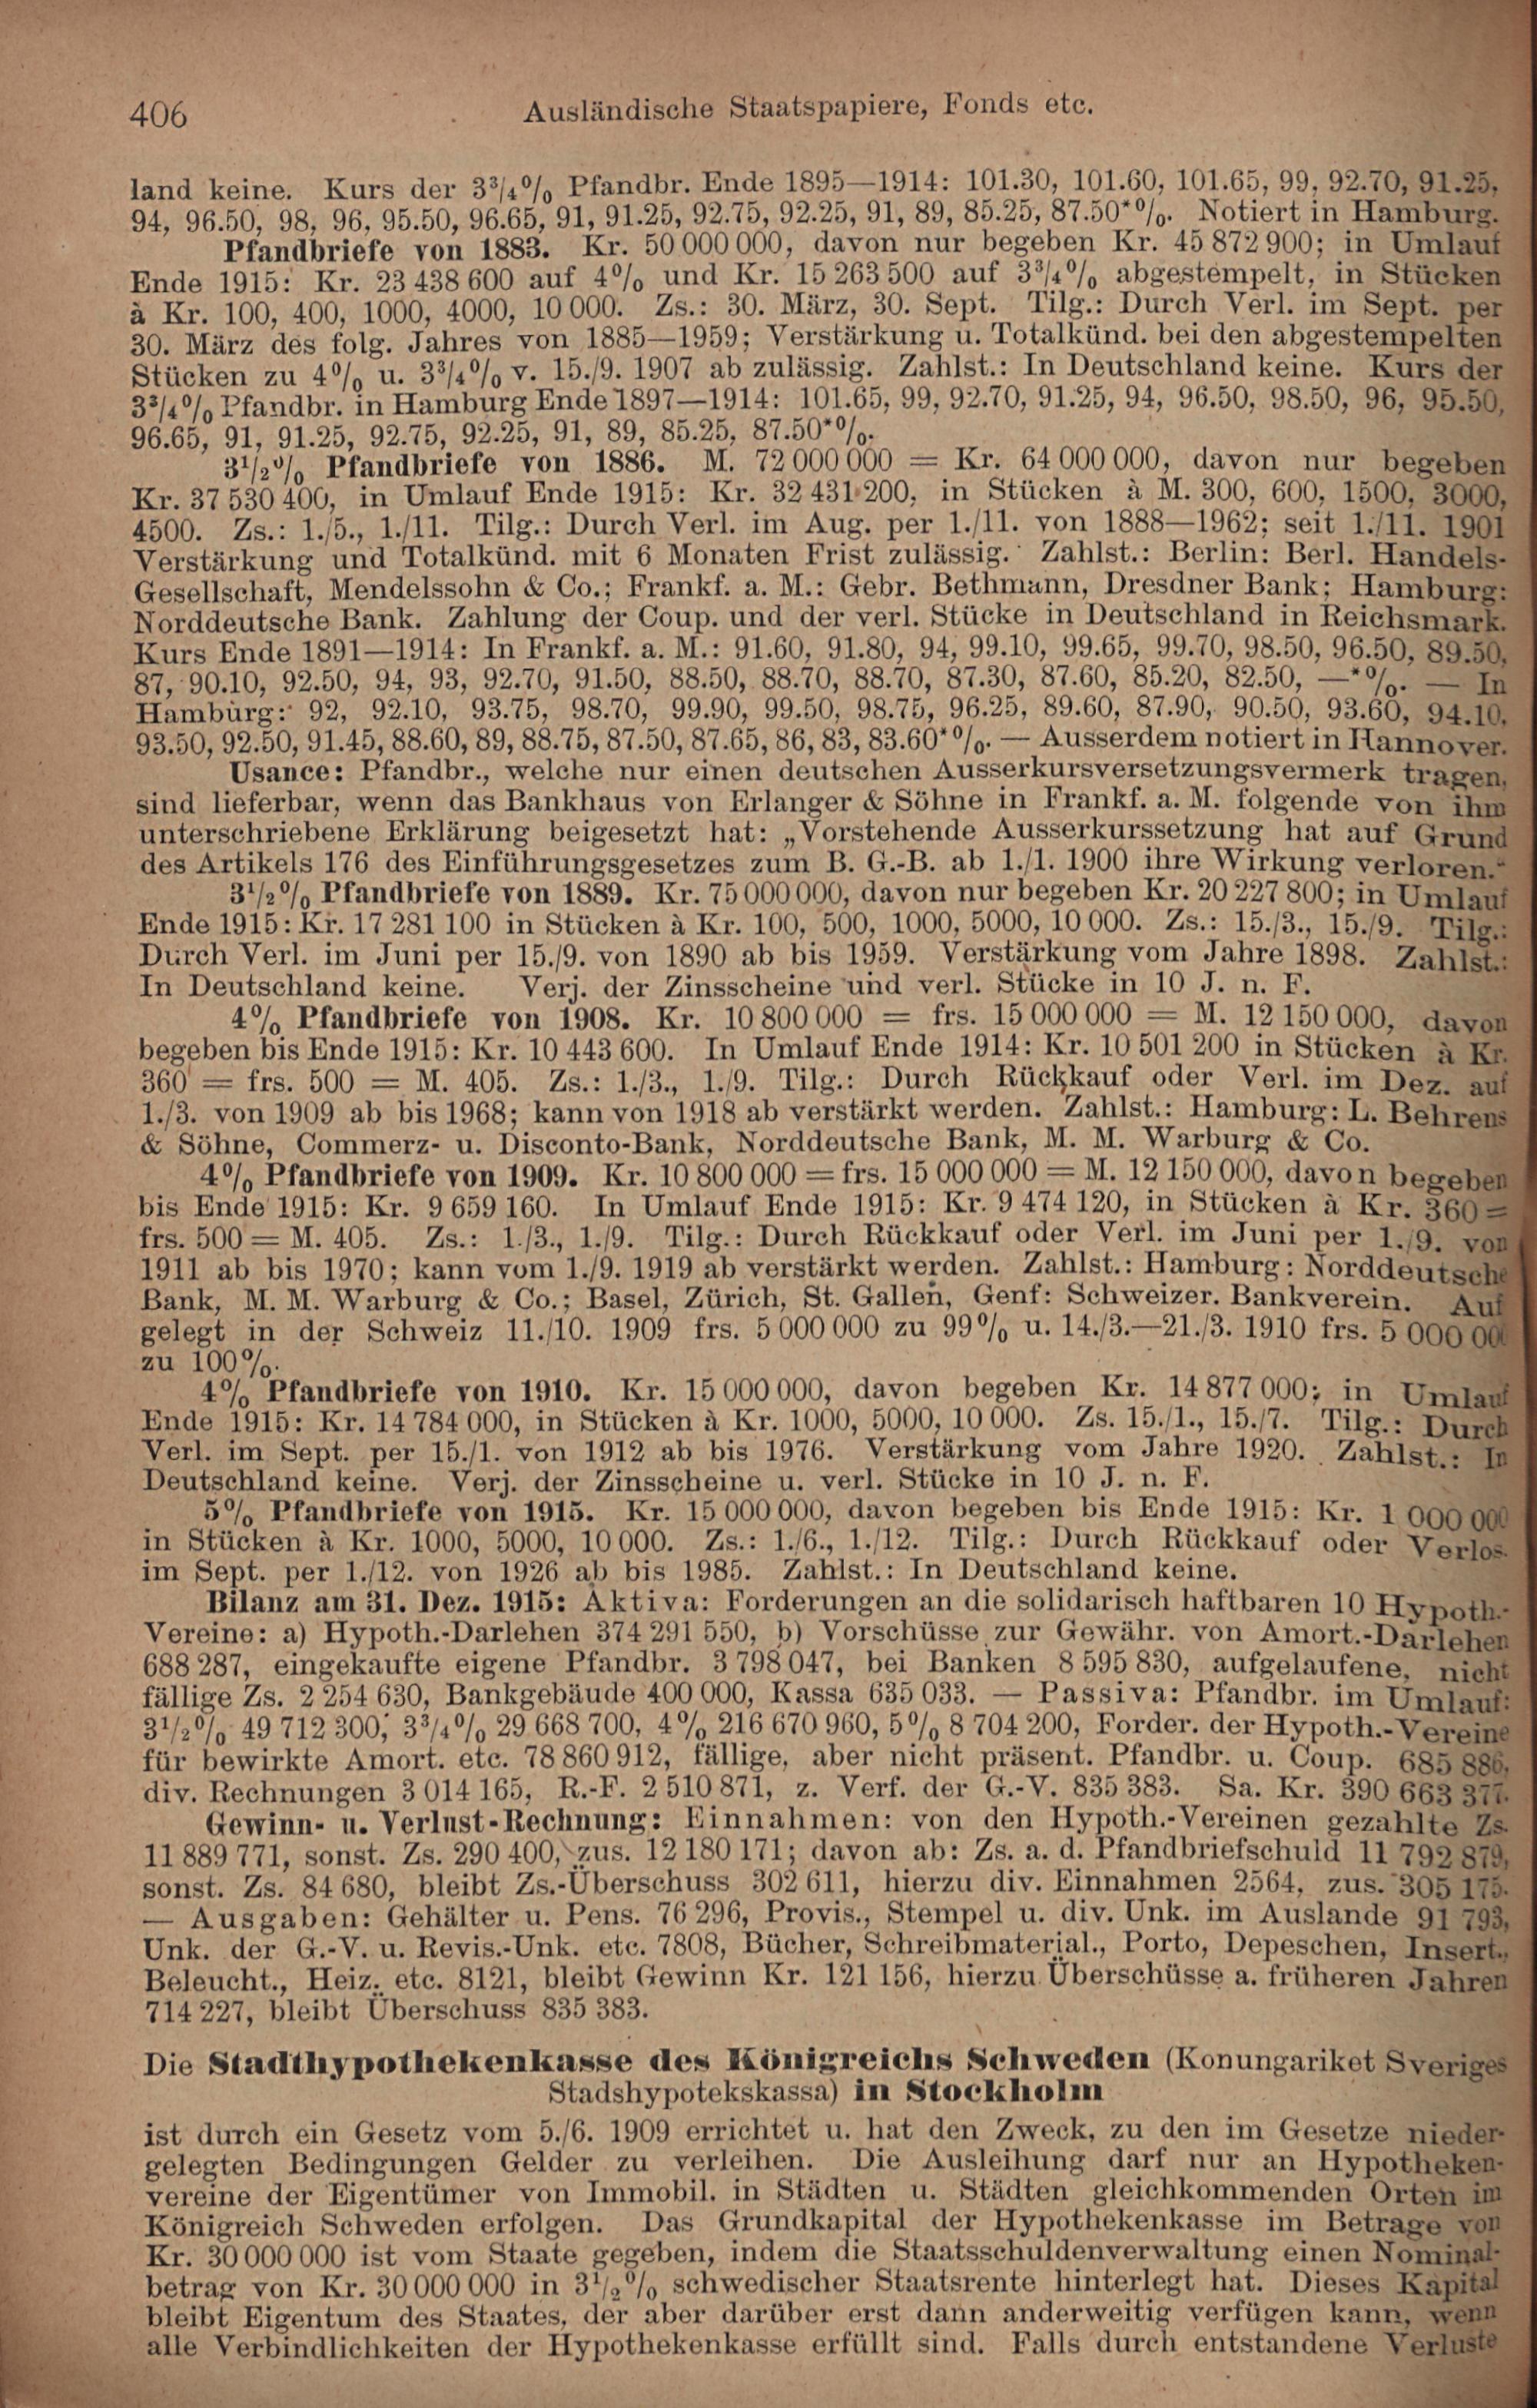 406
Ausländische Staatspapiere, Fonds etc.
land keine. Kurs der 3³/₄⁰/₀ Pfandbr. Ende 1895—1914: 101.30, 101.60, 101.65, 99, 92.70, 91.25,
94, 96.50, 98, 96, 95.50, 96.65, 91, 91.25, 92.75, 92.25, 91, 89, 85.25, 87.50*⁰/₀. Notiert in Hamburg.
Pfandbriefe von 1883. Kr. 50 000 000, davon nur begeben Kr. 45 872 900; in Umlauf
Ende 1915: Kr. 23 438 600 auf 4⁰/₀ und Kr. 15 263 500 auf 3³/₄⁰/₀ abgestempelt, in Stücken
à Kr. 100, 400, 1000, 4000, 10 000. Zs.: 30. März, 30. Sept. Tilg.: Durch Verl. im Sept. per
30. März des folg. Jahres von 1885—1959; Verstärkung u. Totalkünd. bei den abgestempelten
Stücken zu 4⁰/₀ u. 3³/₄⁰/₀ v. 15./9. 1907 ab zulässig. Zahlst.: In Deutschland keine. Kurs der
3³/₄⁰/₀ Pfandbr. in Hamburg Ende 1897—1914: 101.65, 99, 92.70, 91.25, 94, 96.50, 98.50, 96, 95.50,
96.65, 91, 91.25, 92.75, 92.25, 91, 89, 85.25, 87.50*⁰/₀.
3¹/₂⁰/₀ Pfandbriefe von 1886. M. 72 000 000 = Kr. 64 000 000, davon nur begeben
Kr. 37 530 400, in Umlauf Ende 1915: Kr. 32 431 200, in Stücken à M. 300, 600, 1500, 3000,
4500. Zs.: 1./5., 1./11. Tilg.: Durch Verl. im Aug. per 1./11. von 1888—1962; seit 1./11. 1901
Verstärkung und Totalkünd. mit 6 Monaten Frist zulässig. Zahlst.: Berlin: Berl. Handels-
Gesellschaft, Mendelssohn & Co.; Frankf. a. M.: Gebr. Bethmann, Dresdner Bank; Hamburg:
Norddeutsche Bank. Zahlung der Coup. und der verl. Stücke in Deutschland in Reichsmark.
Kurs Ende 1891—1914: In Frankf. a. M.: 91.60, 91.80, 94, 99.10, 99.65, 99.70, 98.50, 96.50, 89.50,
87, 90.10, 92.50, 94, 93, 92.70, 91.50, 88.50, 88.70, 88.70, 87.30, 87.60, 85.20, 82.50, —*⁰/₀. — In
Hamburg: 92, 92.10, 93.75, 98.70, 99.90, 99.50, 98.75, 96.25, 89.60, 87.90, 90.50, 93.60, 94.10,
93.50, 92.50, 91.45, 88.60, 89, 88.75, 87.50, 87.65, 86, 83, 83.60*⁰/₀. — Ausserdem notiert in Hannover.
Usance: Pfandbr., welche nur einen deutschen Ausserkursversetzungsvermerk tragen,
sind lieferbar, wenn das Bankhaus von Erlanger & Söhne in Frankf. a. M. folgende von ihm
unterschriebene Erklärung beigesetzt hat: „Vorstehende Ausserkurssetzung hat auf Grund
des Artikels 176 des Einführungsgesetzes zum B. G.-B. ab 1./1. 1900 ihre Wirkung verloren.“
3¹/₂⁰/₀ Pfandbriefe von 1889. Kr. 75 000 000, davon nur begeben Kr. 20 227 800; in Umlauf
Ende 1915: Kr. 17 281 100 in Stücken à Kr. 100, 500, 1000, 5000, 10 000. Zs.: 15./3., 15./9. Tilg.:
Durch Verl. im Juni per 15./9. von 1890 ab bis 1959. Verstärkung vom Jahre 1898. Zahlst.:
In Deutschland keine. Verj. der Zinsscheine und verl. Stücke in 10 J. n. F.
4⁰/₀ Pfandbriefe von 1908. Kr. 10 800 000 = frs. 15 000 000 = M. 12 150 000, davon
begeben bis Ende 1915: Kr. 10 443 600. In Umlauf Ende 1914: Kr. 10 501 200 in Stücken à Kr.
360 = frs. 500 = M. 405. Zs.: 1./3., 1./9. Tilg.: Durch Rückkauf oder Verl. im Dez. auf
1./3. von 1909 ab bis 1968; kann von 1918 ab verstärkt werden. Zahlst.: Hamburg: L. Behrens
& Söhne, Commerz- u. Disconto-Bank, Norddeutsche Bank, M. M. Warburg & Co.
4⁰/₀ Pfandbriefe von 1909. Kr. 10 800 000 = frs. 15 000 000 = M. 12 150 000, davon begeben
bis Ende 1915: Kr. 9 659 160. In Umlauf Ende 1915: Kr. 9 474 120, in Stücken à Kr. 360 =
frs. 500 = M. 405. Zs.: 1./3., 1./9. Tilg.: Durch Rückkauf oder Verl. im Juni per 1./9. von
1911 ab bis 1970; kann vom 1./9. 1919 ab verstärkt werden. Zahlst.: Hamburg: Norddeutsche
Bank, M. M. Warburg & Co.; Basel, Zürich, St. Gallen, Genf: Schweizer. Bankverein. Auf
gelegt in der Schweiz 11./10. 1909 frs. 5 000 000 zu 99⁰/₀ u. 14./3.—21./3. 1910 frs. 5 000 000
zu 100⁰/₀.
4⁰/₀ Pfandbriefe von 1910. Kr. 15 000 000, davon begeben Kr. 14 877 000; in Umlauf
Ende 1915: Kr. 14 784 000, in Stücken à Kr. 1000, 5000, 10 000. Zs. 15./1., 15./7. Tilg.: Durch
Verl. im Sept. per 15./1. von 1912 ab bis 1976. Verstärkung vom Jahre 1920. Zahlst.: In
Deutschland keine. Verj. der Zinsscheine u. verl. Stücke in 10 J. n. F.
5⁰/₀ Pfandbriefe von 1915. Kr. 15 000 000, davon begeben bis Ende 1915: Kr. 1 000 000
in Stücken à Kr. 1000, 5000, 10 000. Zs.: 1./6., 1./12. Tilg.: Durch Rückkauf oder Verlos.
im Sept. per 1./12. von 1926 ab bis 1985. Zahlst.: In Deutschland keine.
Bilanz am 31. Dez. 1915: Aktiva: Forderungen an die solidarisch haftbaren 10 Hypoth.-
Vereine: a) Hypoth.-Darlehen 374 291 550, b) Vorschüsse zur Gewähr. von Amort.-Darlehen
688 287, eingekaufte eigene Pfandbr. 3 798 047, bei Banken 8 595 830, aufgelaufene, nicht
fällige Zs. 2 254 630, Bankgebäude 400 000, Kassa 635 033. — Passiva: Pfandbr. im Umlauf:
3¹/₂⁰/₀ 49 712 300, 3³/₄⁰/₀ 29 668 700, 4⁰/₀ 216 670 960, 5⁰/₀ 8 704 200, Forder. der Hypoth.-Vereine
für bewirkte Amort. etc. 78 860 912, fällige, aber nicht präsent. Pfandbr. u. Coup. 685 886,
div. Rechnungen 3 014 165, R.-F. 2 510 871, z. Verf. der G.-V. 835 383. Sa. Kr. 390 663 377.
Gewinn- u. Verlust-Rechnung: Einnahmen: von den Hypoth.-Vereinen gezahlte Zs.
11 889 771, sonst. Zs. 290 400, zus. 12 180 171; davon ab: Zs. a. d. Pfandbriefschuld 11 792 879,
sonst. Zs. 84 680, bleibt Zs.-Überschuss 302 611, hierzu div. Einnahmen 2564, zus. 305 175.
— Ausgaben: Gehälter u. Pens. 76 296, Provis., Stempel u. div. Unk. im Auslande 91 793,
Unk. der G.-V. u. Revis.-Unk. etc. 7808, Bücher, Schreibmaterial., Porto, Depeschen, Insert.,
Beleucht., Heiz. etc. 8121, bleibt Gewinn Kr. 121 156, hierzu Überschüsse a. früheren Jahren
714 227, bleibt Überschuss 835 383.
Die Stadthypothekenkasse des Königreichs Schweden (Konungariket Sveriges
Stadshypotekskassa) in Stockholm
ist durch ein Gesetz vom 5./6. 1909 errichtet u. hat den Zweck, zu den im Gesetze nieder-
gelegten Bedingungen Gelder zu verleihen. Die Ausleihung darf nur an Hypotheken-
vereine der Eigentümer von Immobil. in Städten u. Städten gleichkommenden Orten im
Königreich Schweden erfolgen. Das Grundkapital der Hypothekenkasse im Betrage von
Kr. 30 000 000 ist vom Staate gegeben, indem die Staatsschuldenverwaltung einen Nominal-
betrag von Kr. 30 000 000 in 3¹/₂⁰/₀ schwedischer Staatsrente hinterlegt hat. Dieses Kapital
bleibt Eigentum des Staates, der aber darüber erst dann anderweitig verfügen kann, wenn
alle Verbindlichkeiten der Hypothekenkasse erfüllt sind. Falls durch entstandene Verluste